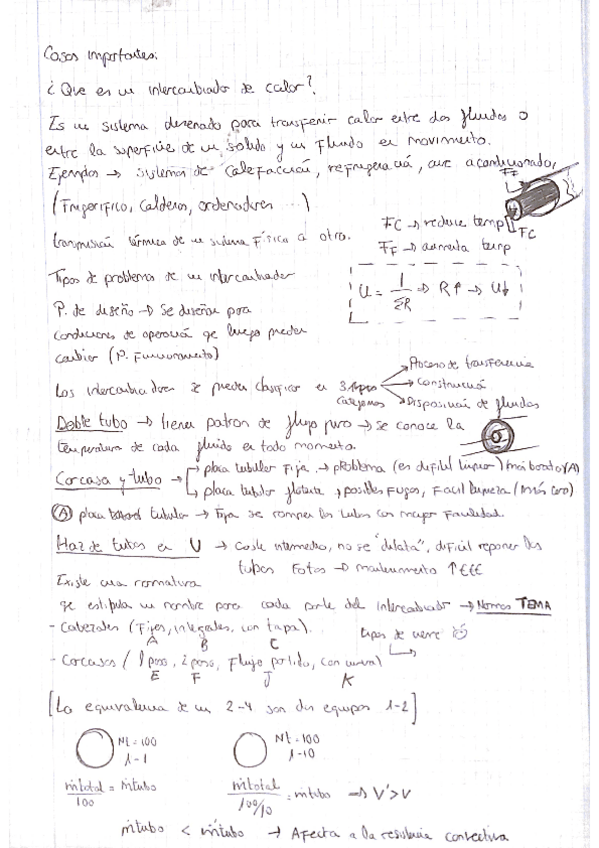 Cosas importantes:
¿Que es un intercambiador de calor?
Es un sistema diseñado para transferir calor entre dos fluidos o
entre la superficie de un sólido y un fluido en movimiento.
Ejemplos → sistemas de calefacción, refrigeración, aire acondicionado,
(Frigorífico, calderas, ordenadores ...)
FF
FC → reduce temp
FC
transmisión térmica de un sistema físico a otro.
FF → aumenta temp
Tipos de problemas de un intercambiador
U = 1/ΣR ⇒ R↑ → U↓
P. de diseño → Se diseñan para
condiciones de operación qe luego pueden
cambiar (P. Funcionamiento)
Los intercambiadores se pueden clasificar en 3 categorías
→ Proceso de transferencia
→ Construcción
→ Disposición de fluidos
Doble tubo → tienen patron de flujo puro → se conoce la
temperatura de cada fluido en todo momento.
Carcasa y tubo → placa tubular Fija → problema (es dificil limpiar) (más barato) (A)
→ placa tubular flotante → posibles Fugas, Facil limpieza (más caro)
(A) placa tubular → Fija se rompen los tubos con mayor facilidad.
Haz de tubos en U → Coste intermedio, no se "dilata", dificil reponer los
tubos rotos → mantenimiento ↑€€€
Existe una normativa
qe estipula un nombre para cada parte del intercambiador → Normas TEMA
- Cabezales (Fijos, integrales, con tapa).
A B C
tipos de
- Carcasas (1 paso, 2 paso, Flujo partido, con)
E F J K
[La equivalencia de un 2-4 son dos equipos 1-2]
Nt = 100
1-1
Nt = 100
1-10
ṁtotal/100 = ṁtubo
ṁtotal/(100/10) = ṁtubo → V' > V
ṁtubo < ṁ'tubo → Afecta a la resistencia convectiva